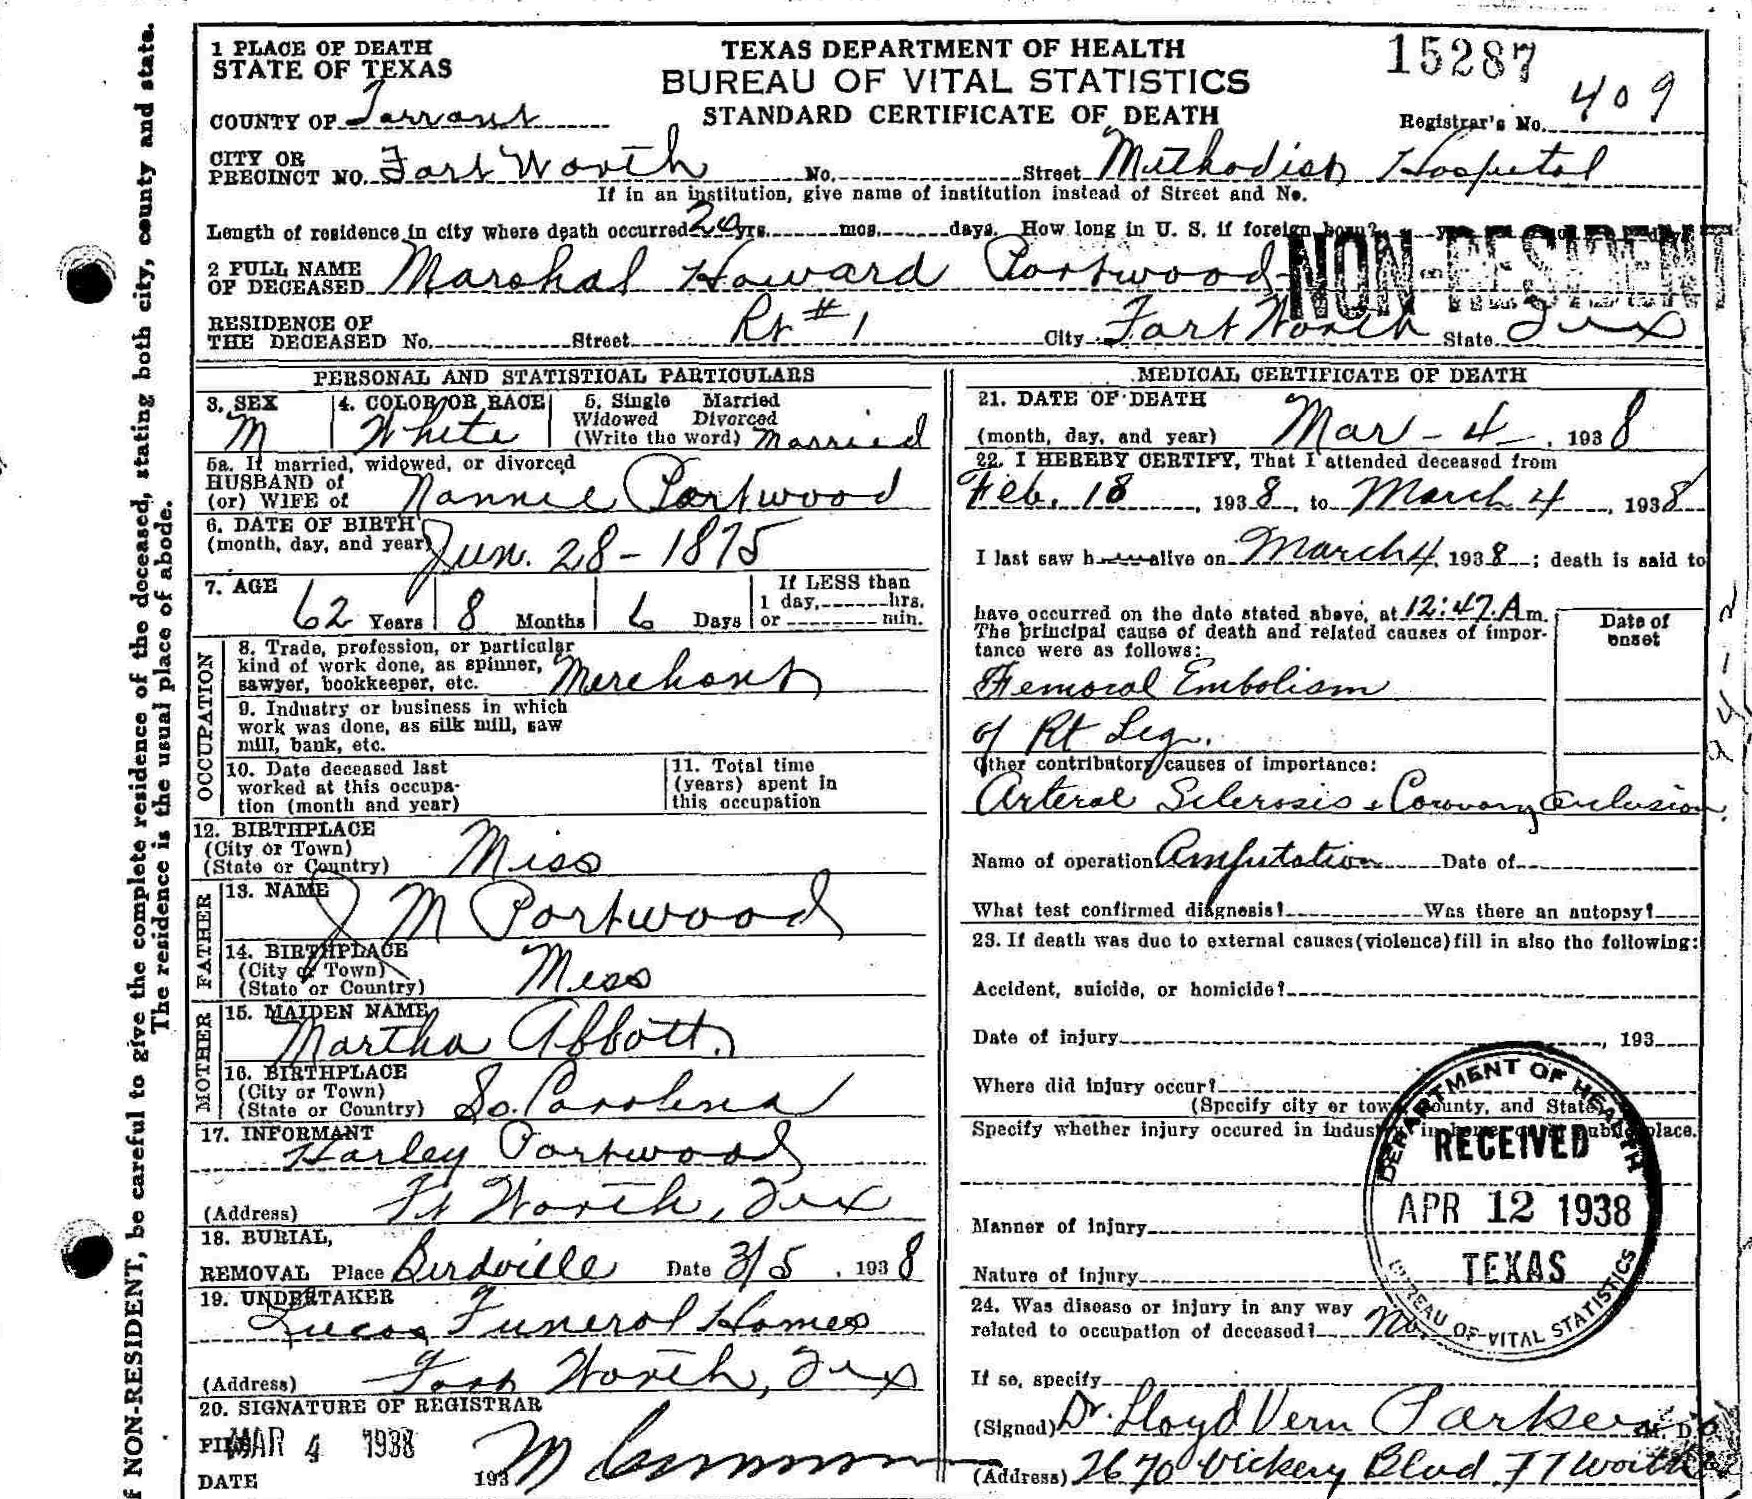 1 PLACE OF DEATH
STATE OF TEXAS
TEXAS DEPARTMENT OF HEALTH
BUREAU OF VITAL STATISTICS
STANDARD CERTIFICATE OF DEATH
15287
COUNTY OF Tarrant
Registrar's No. 409
CITY OR
PRECINCT NO. Fort Worth No. Street Methodist Hospital
If in an institution, give name of institution instead of Street and No.
Length of residence in city where death occurred 20 yrs. mos. days. How long in U. S. if foreign born?
NON-RESIDENT
2 FULL NAME
OF DECEASED Marshal Howard Portwood
RESIDENCE OF
THE DECEASED No. Street Rt #1 City Fort Worth State Tex
PERSONAL AND STATISTICAL PARTICULARS
3. SEX M
4. COLOR OR RACE White
5. Single Married
Widowed Divorced
(Write the word) Married
5a. If married, widowed, or divorced
HUSBAND of
(or) WIFE of Nannie Portwood
6. DATE OF BIRTH
(month, day, and year) Jun. 28-1875
7. AGE
62 Years 8 Months 6 Days
If LESS than
1 day, hrs.
or min.
OCCUPATION
8. Trade, profession, or particular
kind of work done, as spinner,
sawyer, bookkeeper, etc. Merchant
9. Industry or business in which
work was done, as silk mill, saw
mill, bank, etc.
10. Date deceased last
worked at this occupa-
tion (month and year)
11. Total time
(years) spent in
this occupation
12. BIRTHPLACE
(City or Town)
(State or Country) Miss
FATHER
13. NAME J M Portwood
14. BIRTHPLACE
(City or Town)
(State or Country) Miss
MOTHER
15. MAIDEN NAME
Martha Abbott.
16. BIRTHPLACE
(City or Town)
(State or Country) So. Carolina
17. INFORMANT
Harley Portwood
(Address) Ft Worth, Tex
18. BURIAL,
REMOVAL Place Birdville Date 3/5, 1938
19. UNDERTAKER
Lucas Funeral Homes
(Address) Fort Worth, Tex
20. SIGNATURE OF REGISTRAR
MAR 4 1938
DATE 193
MEDICAL CERTIFICATE OF DEATH
21. DATE OF DEATH
(month, day, and year) Mar-4-, 1938
22. I HEREBY CERTIFY, That I attended deceased from
Feb. 18, 1938, to March 4, 1938
I last saw h alive on March 4, 1938; death is said to
have occurred on the date stated above, at 12:47 A m.
The principal cause of death and related causes of impor-
tance were as follows:
Date of
onset
Femoral Embolism
of Rt Leg.
Other contributory causes of importance:
Arteral Sclerosis & Coronary occlusion.
Name of operation Amputation Date of
What test confirmed diagnosis? Was there an autopsy?
23. If death was due to external causes (violence) fill in also the following:
Accident, suicide, or homicide?
Date of injury, 193
Where did injury occur?
(Specify city or town, county, and State)
Specify whether injury occured in industry, in home, or in public place.
Manner of injury
Nature of injury
24. Was disease or injury in any way
related to occupation of deceased? No.
If so, specify
(Signed) Dr. Lloyd Vern Parker M. D.
(Address) 2670 Vickery Blvd. Ft Worth
DEPARTMENT OF HEALTH
RECEIVED
APR 12 1938
TEXAS
BUREAU OF VITAL STATISTICS
94-2
f NON-RESIDENT, be careful to give the complete residence of the deceased, stating both city, county and state.
The residence is the usual place of abode.